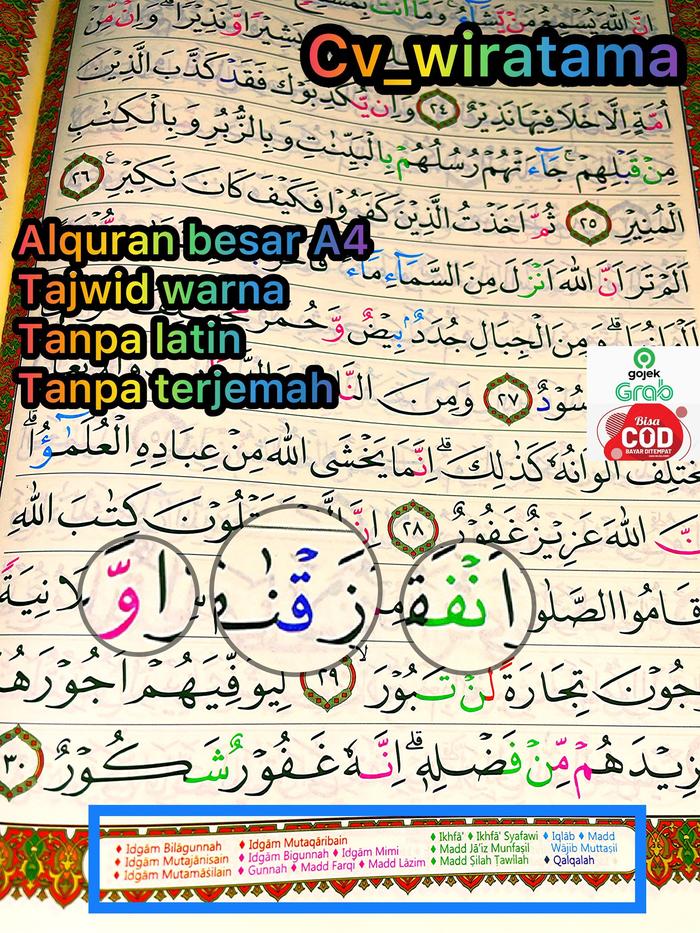 اِنَّ اللّٰهَ يُسْمِعُ مَنْ يَّشَاۤءُ ۚ وَمَآ اَنْتَ
بَشِيْرًا وَّنَذِيْرًا ۗ وَاِنْ مِّنْ
Cv_wiratama
اُمَّةٍ اِلَّا خَلَا فِيْهَا نَذِيْرٌ ٢٤ وَاِنْ يُّكَذِّبُوْكَ فَقَدْ كَذَّبَ الَّذِيْنَ
مِنْ قَبْلِهِمْ ۚ جَاۤءَتْهُمْ رُسُلُهُمْ بِالْبَيِّنٰتِ وَبِالزُّبُرِ وَبِالْكِتٰبِ
الْمُنِيْرِ ٢٥ ثُمَّ اَخَذْتُ الَّذِيْنَ كَفَرُوْا فَكَيْفَ كَانَ نَكِيْرِ ࣖ ٢٦
Alquran besar A4
اَلَمْ تَرَ اَنَّ اللّٰهَ اَنْزَلَ مِنَ السَّمَاۤءِ مَاۤءً
Tajwid warna
اَلْوَانُهَا ۗ وَمِنَ الْجِبَالِ جُدَدٌۢ بِيْضٌ وَّحُمْرٌ
Tanpa latin
Tanpa terjemah
gojek
Grab
سُوْدٌ ٢٧ وَمِنَ
Bisa
COD
BAYAR DITEMPAT
مُخْتَلِفٌ اَلْوَانُهٗ كَذٰلِكَ ۗ اِنَّمَا يَخْشَى اللّٰهَ مِنْ عِبَادِهِ الْعُلَمٰۤؤُا ۗ
اِنَّ اللّٰهَ عَزِيْزٌ غَفُوْرٌ ٢٨ اِنَّ يَتْلُوْنَ كِتٰبَ اللّٰهِ
قَامُوا الصَّلٰو اَنْفَقُ زَقْنٰهُ ا وَّ لَانِيَةً
جُوْنَ تِجَارَةً لَّنْ تَبُوْرَ ۙ ٢٩ لِيُوَفِّيَهُمْ اُجُوْرَهُ
زِيْدَهُمْ مِّنْ فَضْلِهٖ ۗ اِنَّهٗ غَفُوْرٌ شَكُوْرٌ ٣٠
♦ Idgām Bilāgunnah ♦ Idgām Mutaqāribain ♦ Ikhfā' ♦ Ikhfā' Syafawi ♦ Iqlāb ♦ Madd
♦ Idgām Mutajānisain ♦ Idgām Bigunnah ♦ Idgām Mimi ♦ Madd Jā'iz Munfaṣil Wājib Muttaṣil
♦ Idgām Mutamāṡilain ♦ Gunnah ♦ Madd Farqi ♦ Madd Lāzim ♦ Madd Ṣilah Ṭawīlah ♦ Qalqalah